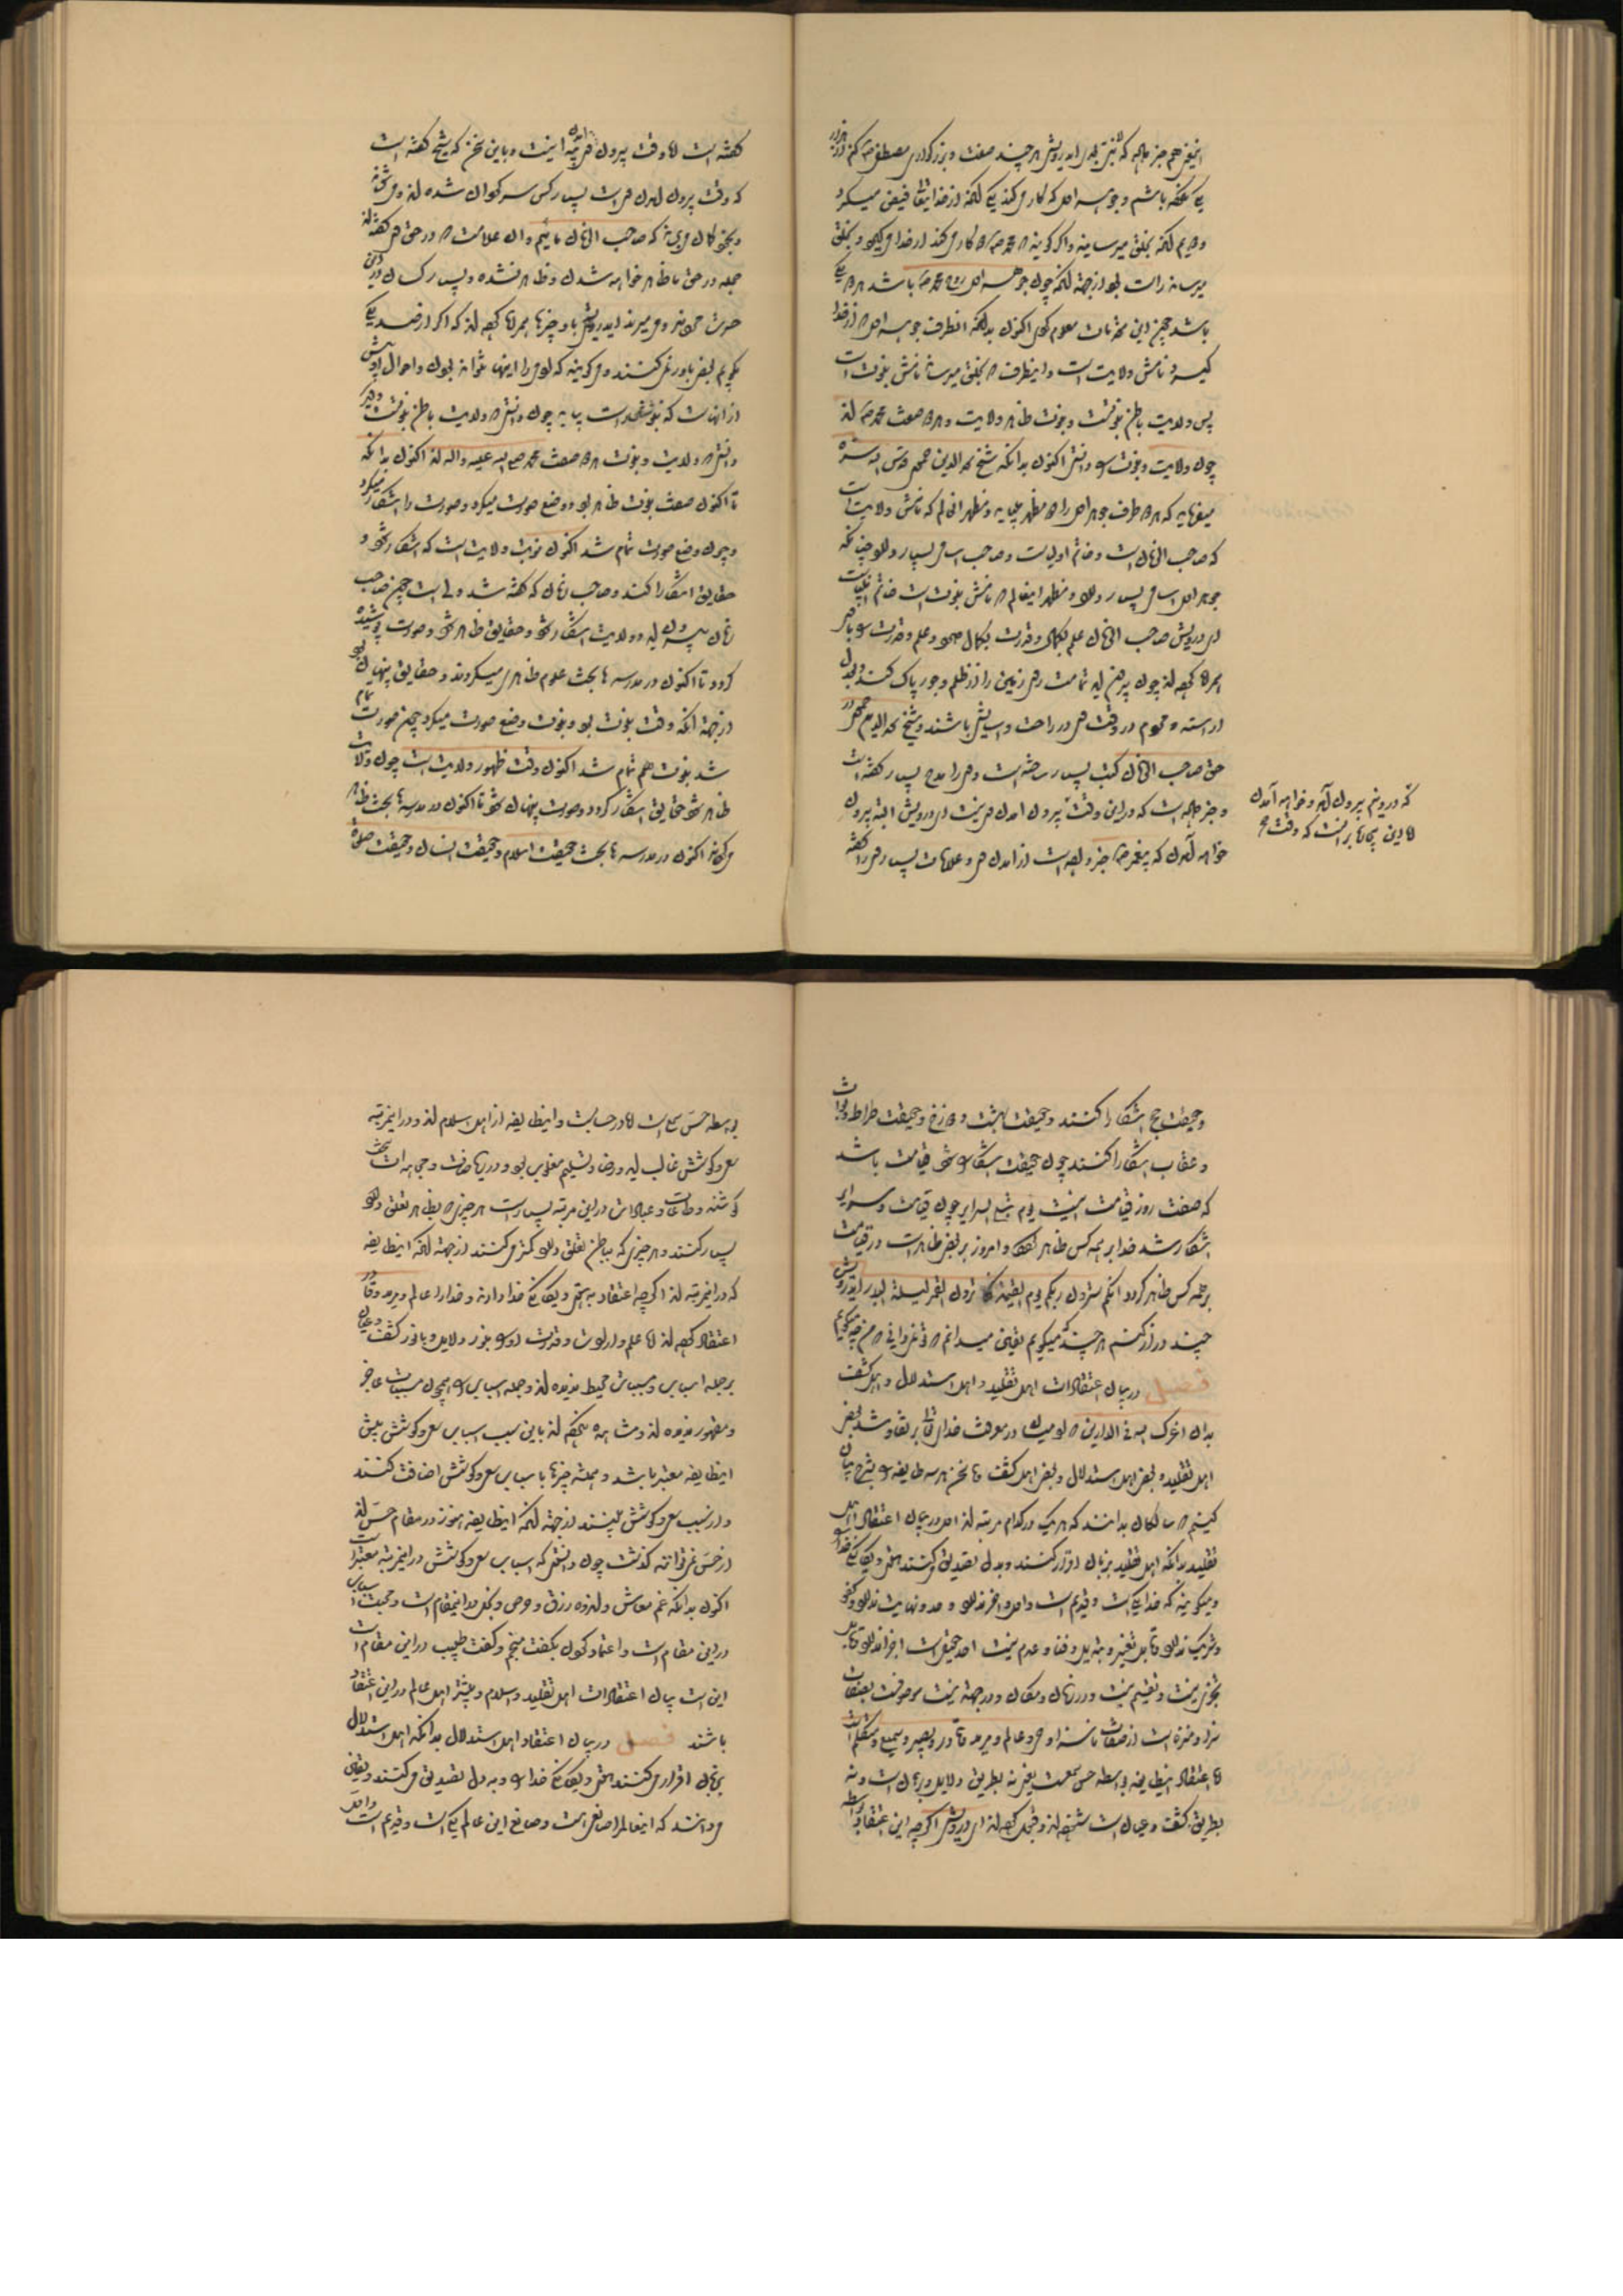 یک عکه باشم و جوهر اول که کار می کند یکی آنکه از خدایتعالی فیض میگیرد
و دویم آنکه بخلق میرساند و اگر گویند که محمد دو کار می کند از خدا میگیرد و بخلق
میرساند راست بود از جهت آنکه چون جوهر اول روح محمد باشد هر دو یکی
باشد چون این مقدمات معلوم کردی اکنون بدانکه انطرف جوهر اول که از خدا
میگیرد نامش ولایت است و اینطرف که بخلق میرساند نامش نبوت است
پس ولایت باطن نبوتست و نبوت ظاهر ولایت و هر دو صفت محمد اند
چون ولایت و نبوت را دانستی اکنون بدانکه شیخ سعد الدین حموی قدس الله سره
میفرماید که هر دو طرف جوهر اول را دو مظهر میباید و مظهر این که نامش ولایت است
که صاحب الزمان است و خاتم اولیاست و صاحب اسامی بسیار دارد چنانکه
جوهر اول اسامی بسیار دارد و مظهر اینطرف که نامش نبوت است خاتم انبیاست
ای درویش صاحب الزمان علم بکمال و قدرت بکمال دارد و علم و قدرت را با
همراه کرده اند چون بیرون آید تمامت روی زمین را از ظلم و جور پاک کند و بعدل
آراسته و مردم در وقت وی در راحت و آسایش باشند و شیخ سعد الدین حموی در
حق صاحب الزمان کتب بسیار ساخته است و وی را مدح بسیار گفته است
و خبر داده است که در این وقت بیرون آمدن وی نیست ای درویش البته بیرون
خواهد آمدن که پیغمبر خبر داده است از آمدن وی و علامات بسیار وی را گفته
که در وین بیرون آید و خواهد آمدن
گفته است اما وقت بیرون آمدن وی اینست و باین سخن که شیخ گفته است
که وقت بیرون آمدن وی است بسیار کس سرگردان شده اند و
و بخود گمان می برند که صاحب الزمان مائیم و آن علامت که در حق وی گفته اند
جمله در حق ما ظاهر خواهد شدن و ظاهر نشده و بسیار کسان در این
حسرت مردند و می میرند ای درویش با وی چیزها همراه کرده اند که اگر از صد یکی
بگویم بعضی باور نمی کنند و می گویند که آدمی را اینها نتواند بودن و احوال او بیش
از آنهاست که بنوشتن راست بیاید چون دانستی که ولایت باطن نبوتست و دیگر
دانستی که ولایت و نبوت هر دو صفت محمد صلی الله علیه و اله اند اکنون بدانکه
تا اکنون صفت نبوت ظاهر بود و وضع صورت میکرد و صورت را آشکارا میکرد
و چون وضع صورت تمام شد اکنون نوبت ولایت است که آشکارا شود و
حقایق آشکارا کند و صاحب زمان که گفته شد ولی است چون صاحب
زمان بیرون آید ولایت آشکارا شود و حقایق ظاهر شود و صورت پوشیده
گردد تا اکنون در مدرسه ها بحث علوم ظاهری میکردند و حقایق پنهان بود
از جهت آنکه وقت نبوت بود و نبوت وضع صورت میکرد چون صورت تمام
شد نبوت هم تمام شد اکنون وقت ظهور ولایت است چون ولایت
ظاهر شود حقایق آشکارا گردد و صورت پنهان شود تا اکنون در مدرسه ها بحث ظاهر
می کردند اکنون در مدرسه ها بحث حقیقت اسلام و حقیقت انسان و حقیقت صلوة
و حقیقت حج آشکارا کنند و حقیقت بهشت و دوزخ و حقیقت صراط و ثواب
و عقاب آشکارا کنند چون حقیقت آشکارا شود قیامت باشد
که صفت روز قیامت اینست یوم تبلی السرایر چون قیامت و سرایر
آشکارا شد خدا بر همه کس ظاهر گردد و امروز بر بعضی ظاهر است در قیامت
بر همه کس ظاهر گردد انکم سترون ربکم یوم القیمة کما ترون القمر لیلة البدر ای درویش
چند دراز کنم هر چند که میگویم یقین میدانم که نمی دانی که من چه میگویم
فصل در بیان اعتقادات اهل تقلید و اهل استدلال و اهل کشف
بدان اعزک الله فی الدارین که آدمیان در معرفت خدای تعالی بر تفاوتند بعضی
اهل تقلید و بعضی اهل استدلال و بعضی اهل کشف ما سخن هر سه طایفه را بشرح بیان
کنیم که سالکان بدانند که هر یک در کدام مرتبه اند اول در بیان اعتقاد اهل
تقلید بدانکه اهل تقلید بزبان اقرار کنند و بدل تصدیق می کنند هستی و یگانگی خدا را
و میگویند که خدا یکیست و قدیم است و اول و آخر ندارد و حد و نهایت ندارد و کفو
و شریک ندارد و قابل تغییر و تبدیل و فنا و عدم نیست احد حقیقی است اجزا ندارد قابل
تجزی نیست و تقسیم نیست و در زمان و مکان و در جهت نیست موصوفست بصفات
سزا و منزه است از صفات ناسزا و حی و عالم و مرید و قادر و بصیر و سمیع و متکلم است
اما اعتقاد اینطایفه بواسطه حس سمعست یعنی نه بطریق دلایل و برهان است و نه
بطریق کشف و عیان است شنیده اند و قبول کرده اند ای درویش اگر چه این اعتقاد بواسطه
بواسطه حس سمع است اما در حسابست و اینطایفه از اهل اسلام اند و در این مرتبه
سعی و کوشش غالب آید و رضا و تسلیم مغلوب بود و در ریاضات و مجاهدات سخت
کوشند و طاعات و عبادات در این مرتبه بسیار است هر چیزی که بظاهر تعلق دارد
بسیار کنند و هر چیزی که بباطن تعلق دارد کمتر می کنند از جهت آنکه اینطایفه
که در این مرتبه اند اگر چه اعتقاد بهستی و یگانگی خدا دارند و خدا را عالم و مرید و قادر
اعتقاد کرده اند اما علم و ارادت و قدرت او را بنور دلایل و یا نور کشف و عیان
بر جمله اسباب و مسببات محیط ندیده اند و جمله اسباب را همچون مسببات عاجز
و مقهور ندیده اند و مشاهده نکرده اند باین سبب اسباب سعی و کوشش پیش
اینطایفه معتبر باشد و همه چیزها باسباب سعی و کوشش اضافت کنند
و از سبب سعی و کوشش بینند از جهت آنکه اینطایفه هنوز در مقام حس اند
از حس نمی توانند گذشت چون دانستی که اسباب سعی و کوشش در این مرتبه معتبر است
اکنون بدانکه غم معاش و اندوه رزق و حرص و بخل در این مقام است و محبت اسباب
در این مقام است و اعتماد کردن بگفت منجم و گفت طبیب در این مقام است
این است بیان اعتقادات اهل تقلید و اسلام و بیشتر اهل عالم در این اعتقاد
باشند فصل در بیان اعتقاد اهل استدلال بدانکه اهل استدلال
بزبان اقرار می کنند هستی و یگانگی خدا را و بدل تصدیق می کنند و یقین
می دانند که اینعالم را صانعی هست و صانع این عالم یکی است و قدیم است و اول